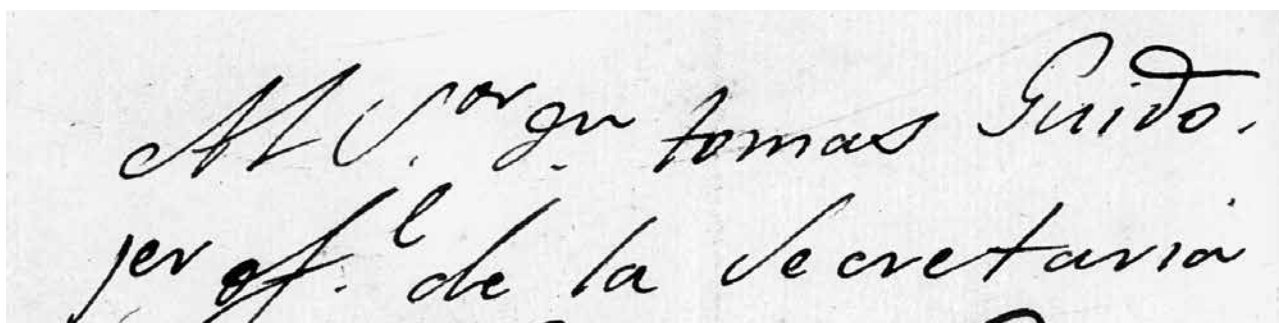 Al S.or Dn. tomas Guido.
1er of.l de la Secretaria